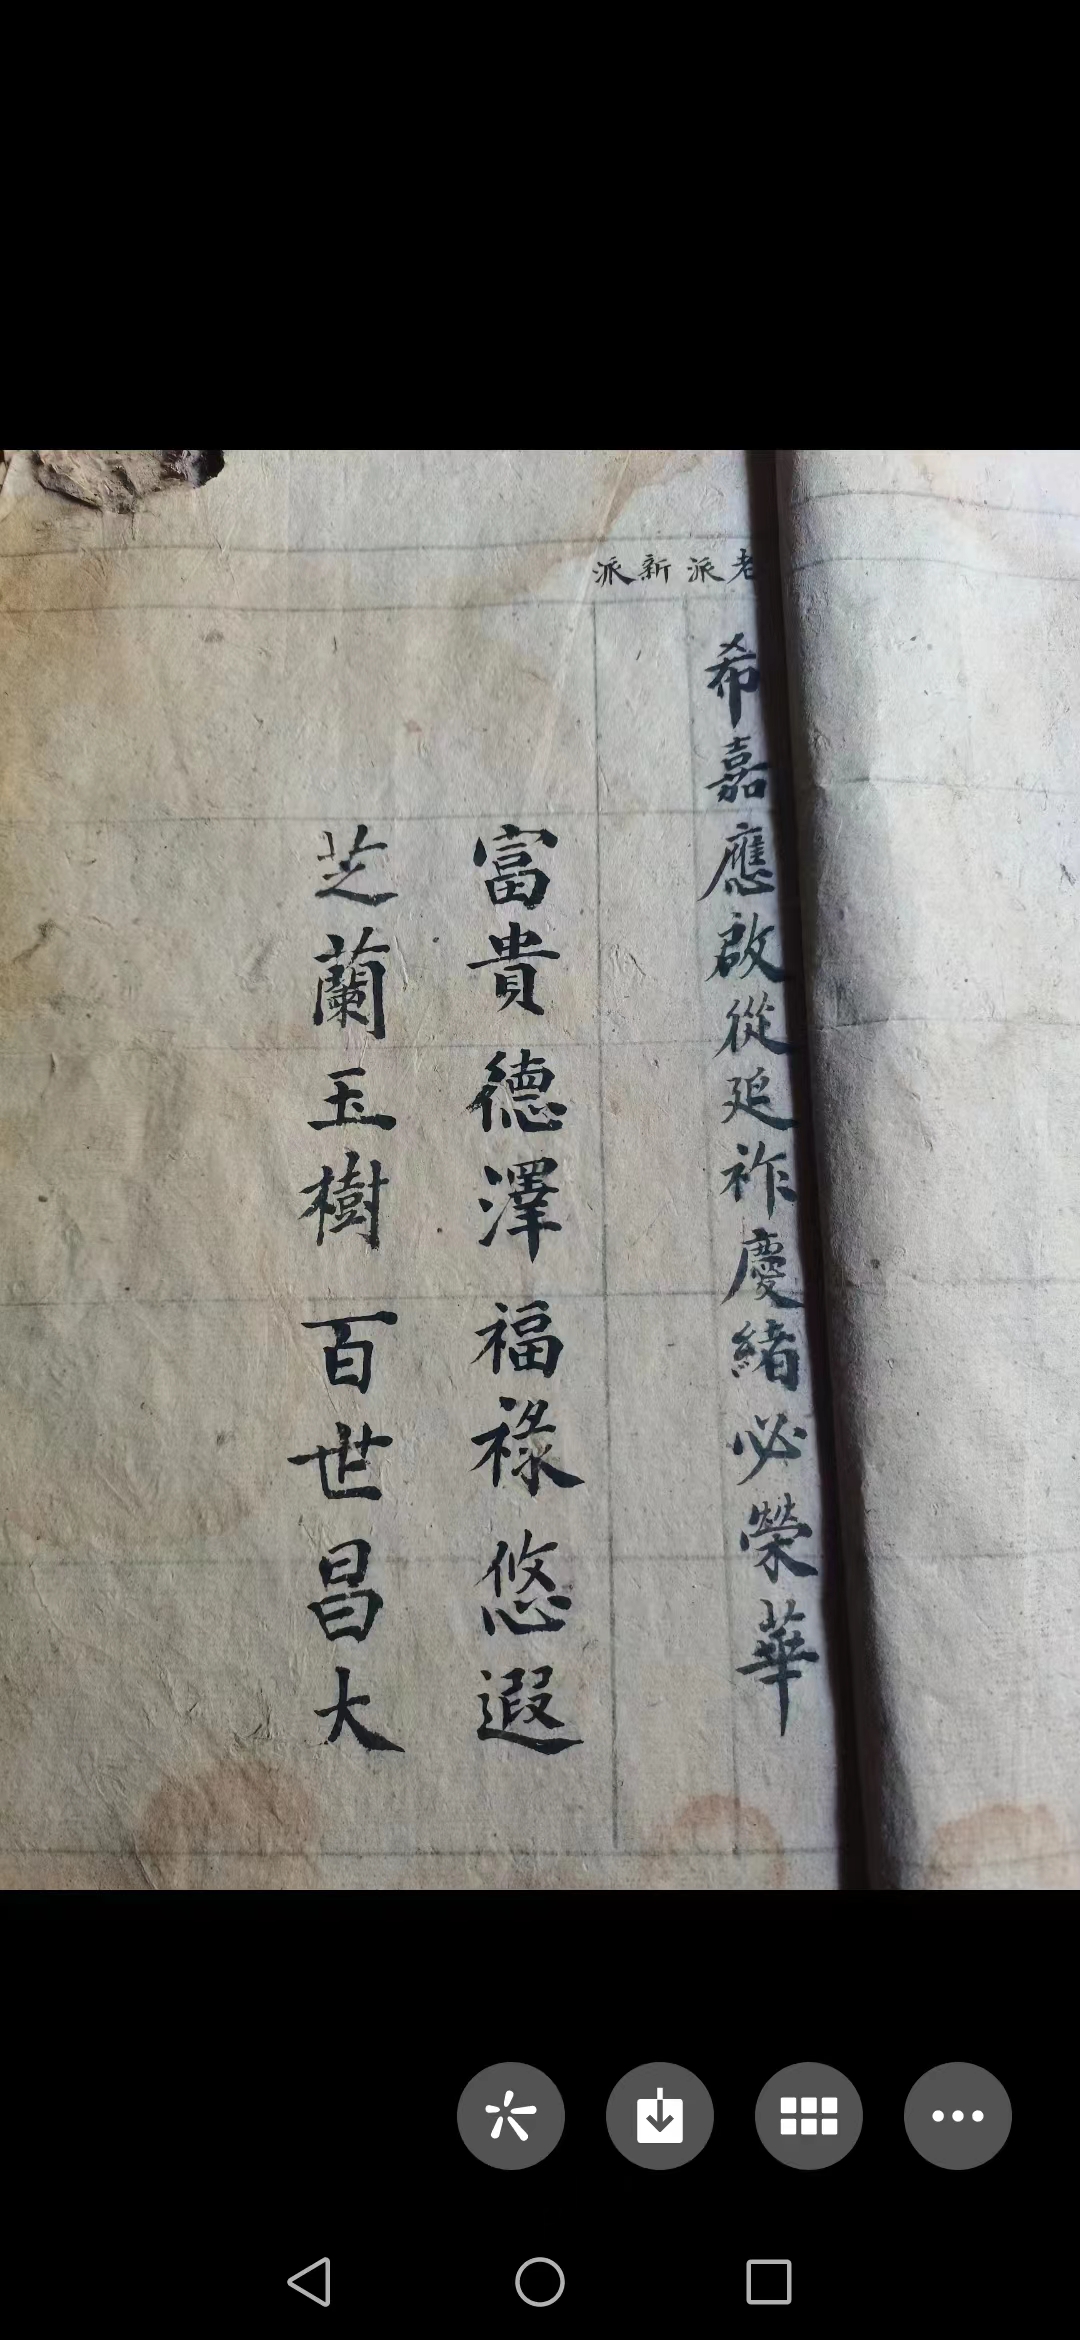 老派新派
希嘉應啟從延祚慶緒必榮華
富貴德澤福祿悠遐
芝蘭玉樹百世昌大